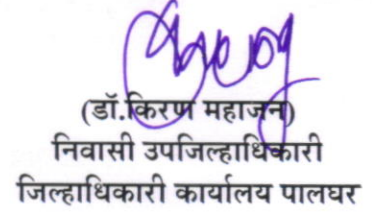 (डॉ.किरण महाजन)
निवासी उपजिल्हाधिकारी
जिल्हाधिकारी कार्यालय पालघर